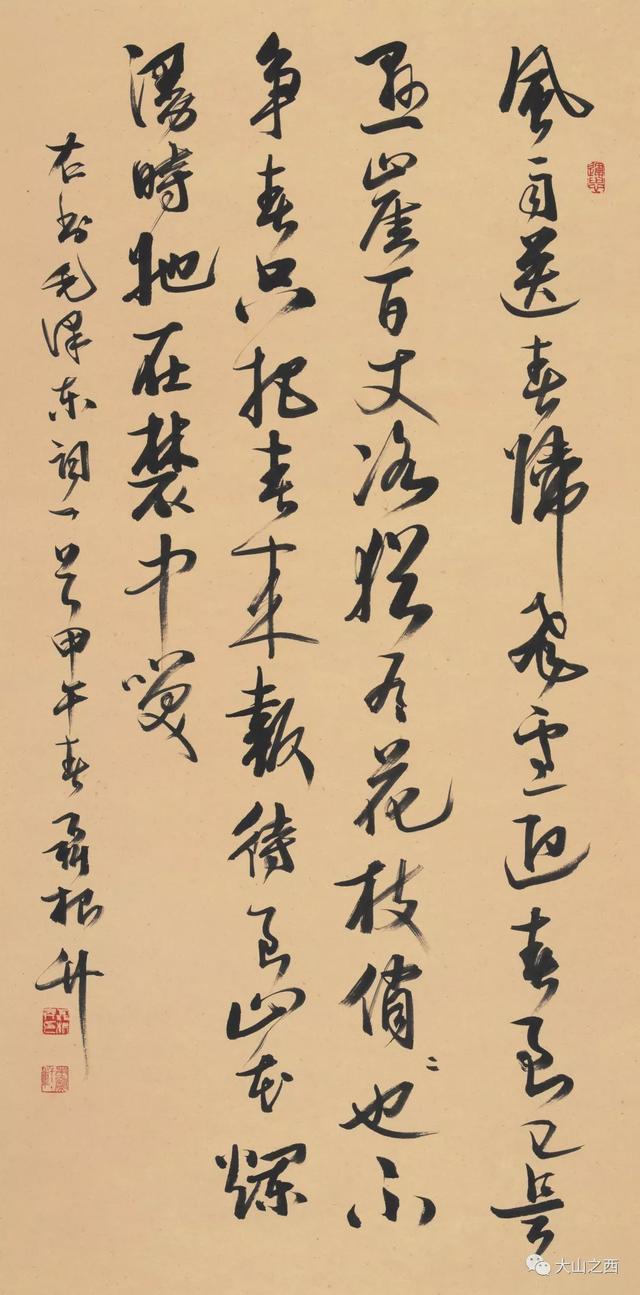 風雨送春歸飛雪迎春到已是
懸崖百丈冰猶有花枝俏〻也不
争春只把春来報待到山花爛
漫時她在叢中咲
右书毛澤东詞一首甲午春聂根升
大山之西